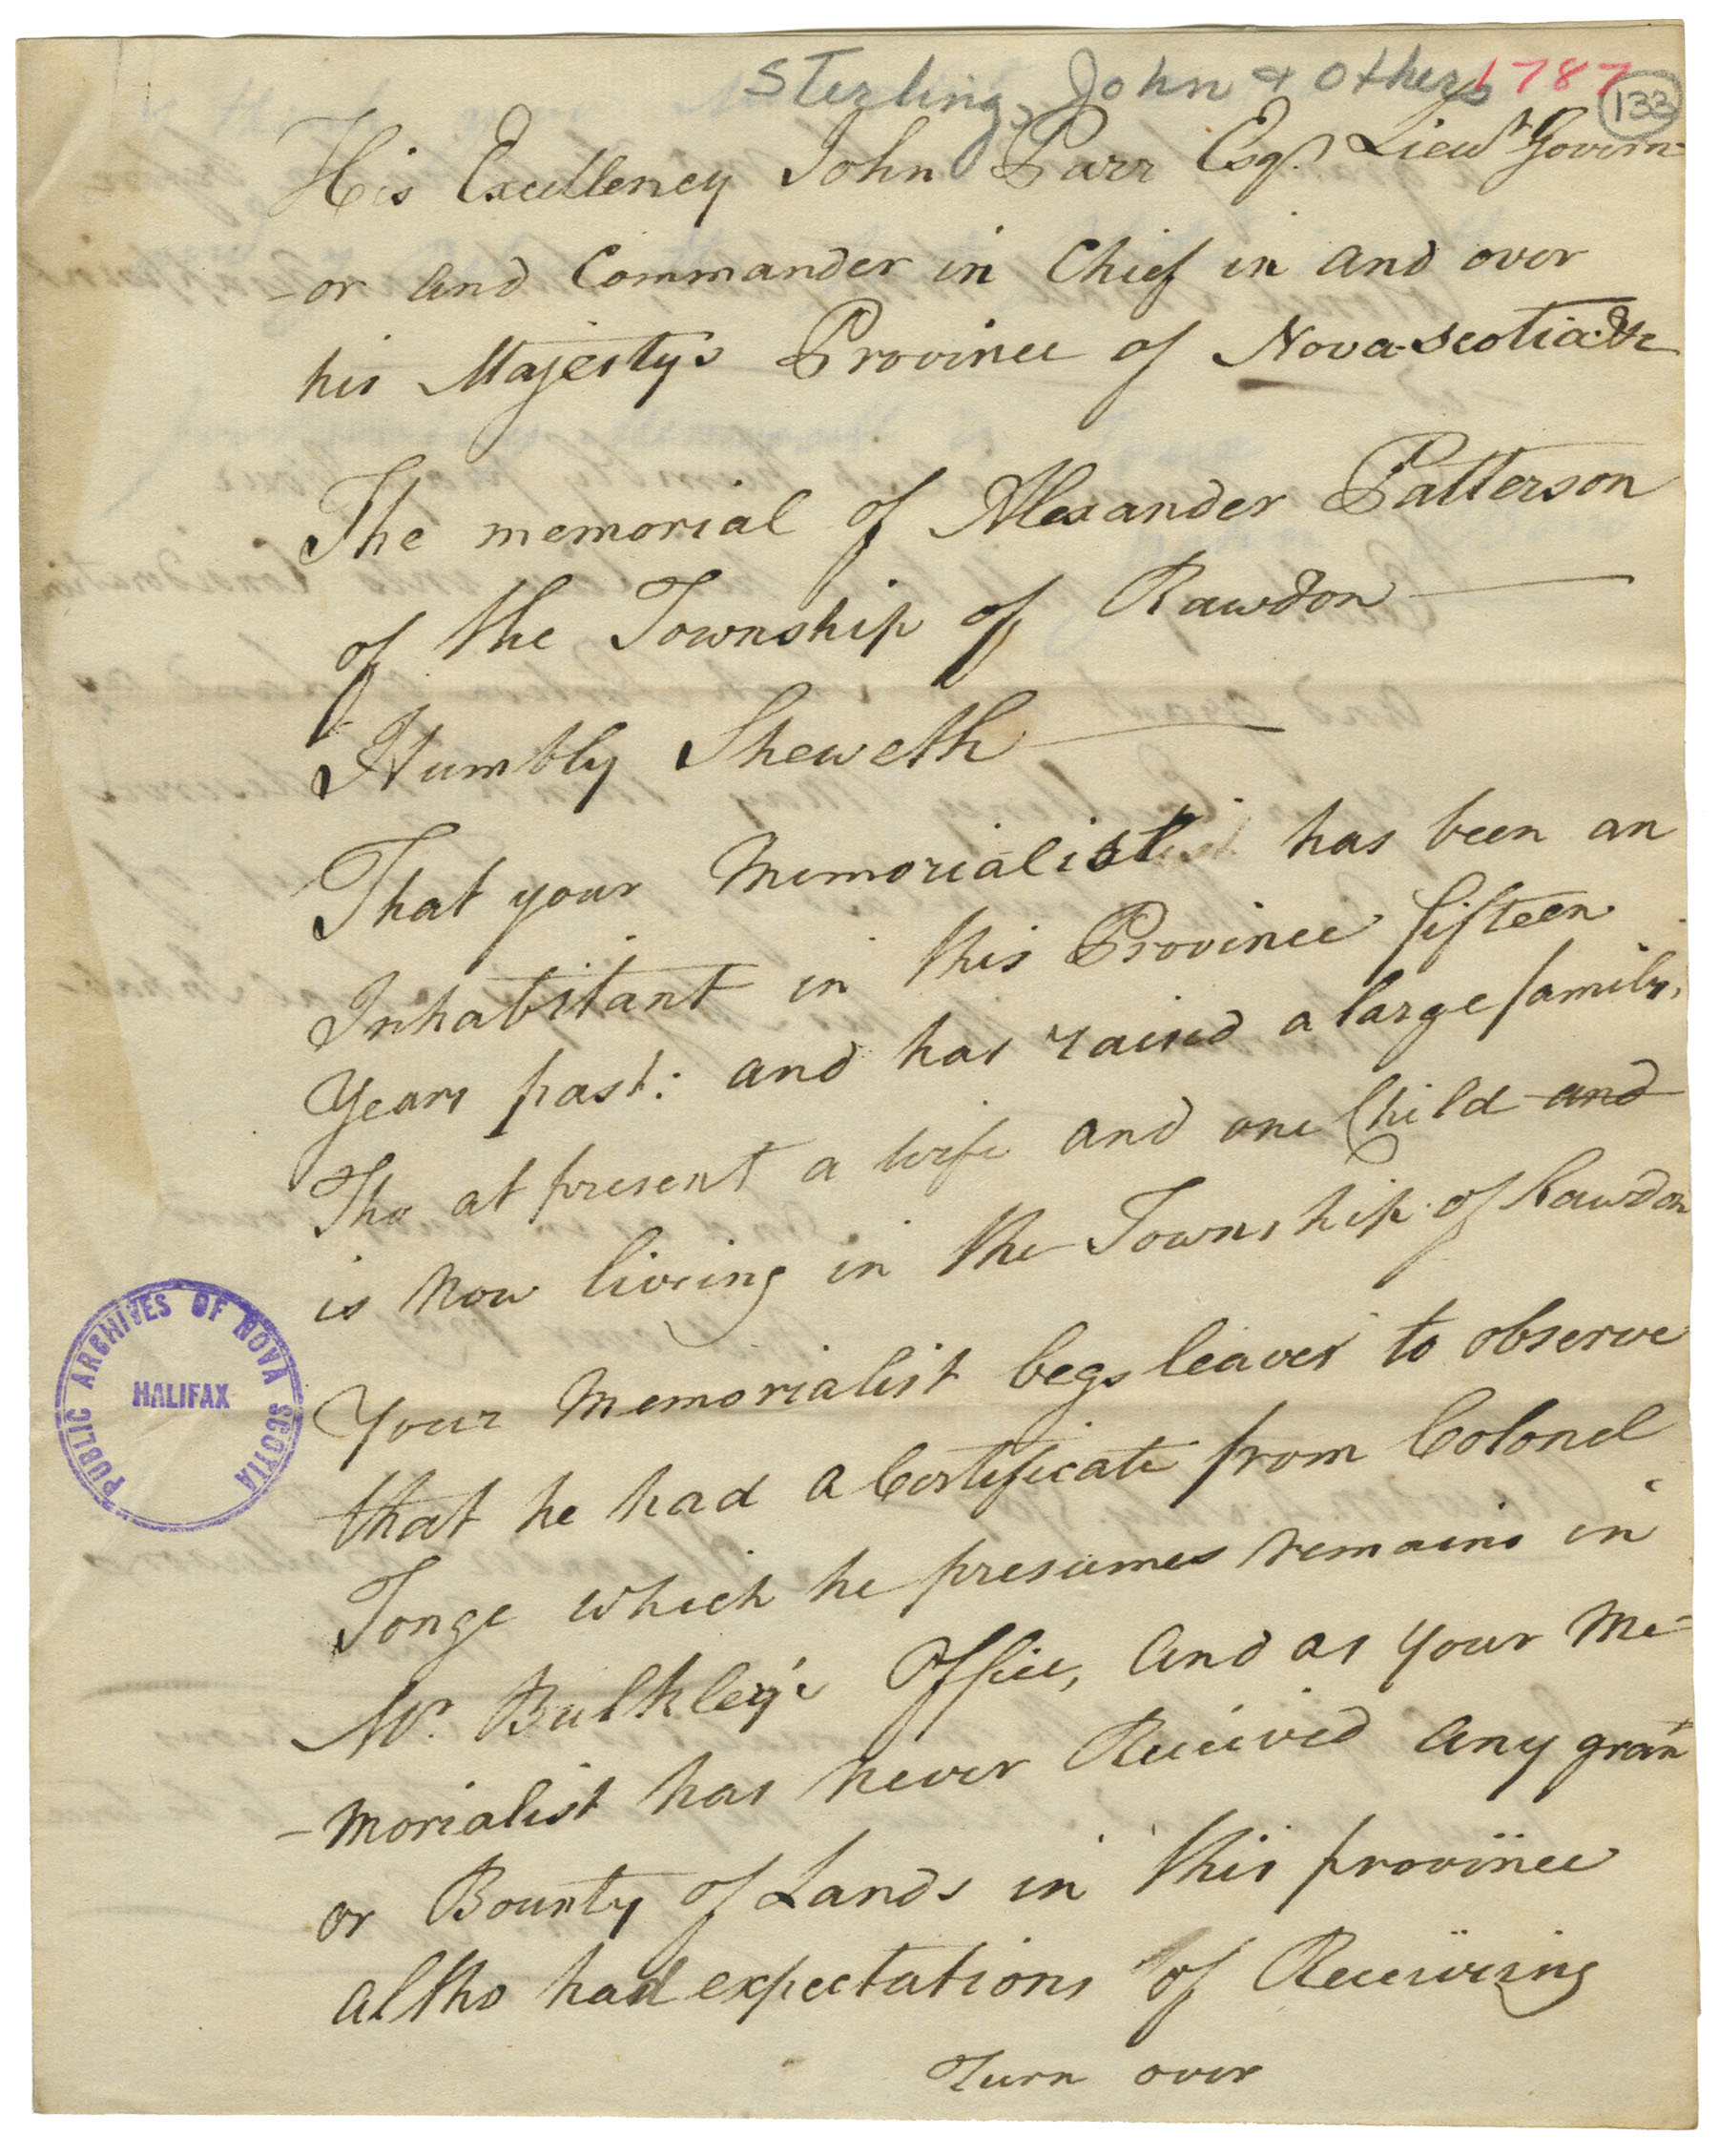 Sterling, John & Others 1787
133
His Excellency John Parr Esqr. Lieut Govern-
-or and Commander in Chief in and over
his Majestys Province of Nova-Scotia &c
The memorial of Alexander Patterson
of the Township of Rawdon
Humbly Sheweth
That your Memorialist has been an
Inhabitant in this Province fifteen
Years past: and has raised a large family,
Tho at present a wife and one Child and
is Now living in the Township of Rawdon
Your Memorialist begs leaves to observe
that he had a Certificate from Colonel
Tonge which he presumes remains in
Mr. Bulkley's Office, and as Your Me-
-morialist has never Received any grant
or Bounty of Lands in this province
altho had expectations of Receiving
Turn over
PUBLIC ARCHIVES OF NOVA SCOTIA
HALIFAX